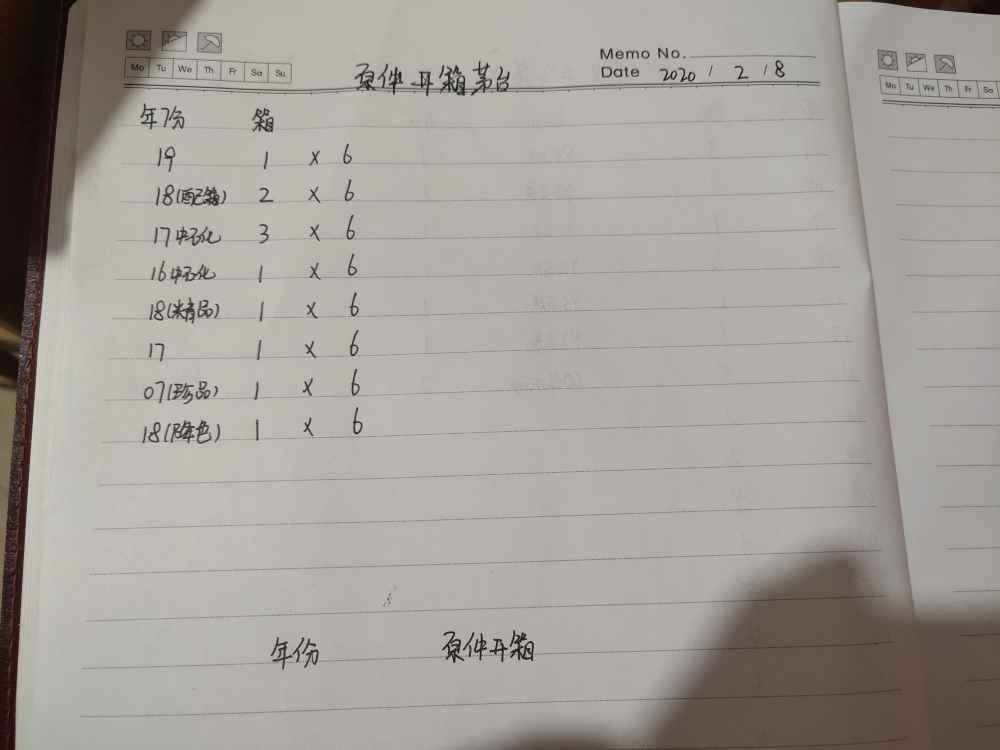 Memo No.
Mo Tu We Th Fr Sa Su
原件开箱茅台
Date 2020 / 2 / 8
年份 箱
19 1 × 6
18(配箱) 2 × 6
17中石化 3 × 6
16中石化 1 × 6
18(精品) 1 × 6
17 1 × 6
07(珍品) 1 × 6
18( 色) 1 × 6
年份 原件开箱
Mo Tu We Th Fr Sa